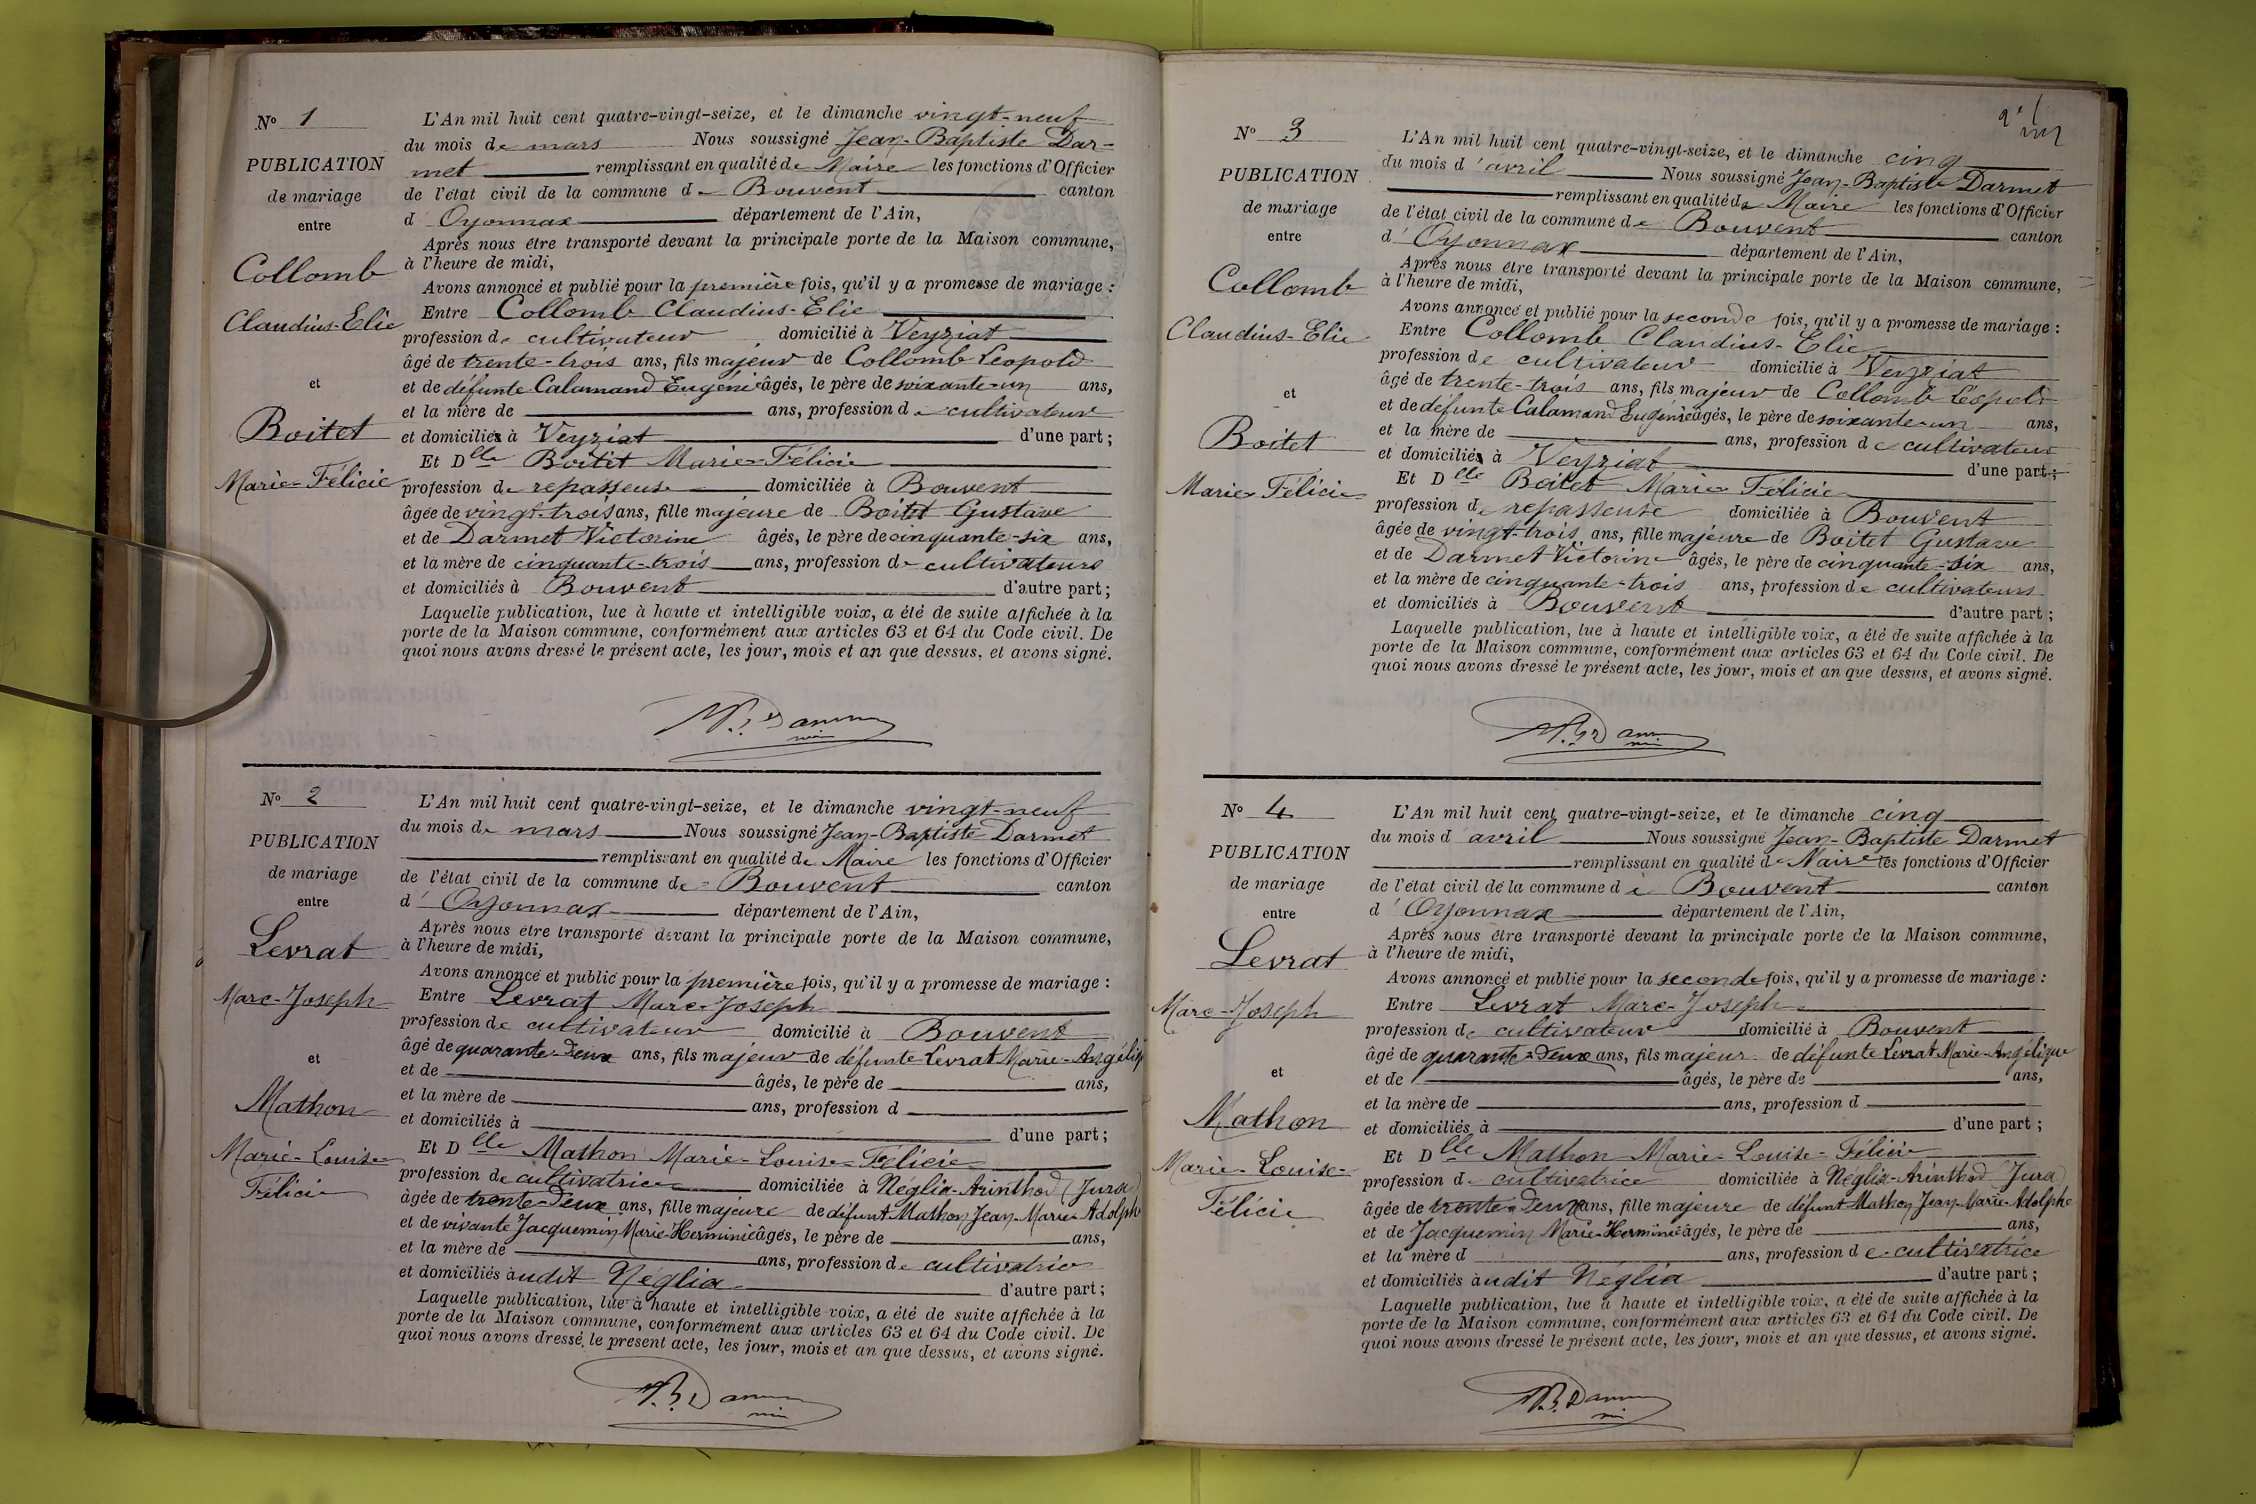 N° 1
PUBLICATION
de mariage
entre
Collomb
Claudius-Elie
et
Boitet
Marie-Félicie
L'An mil huit cent quatre-vingt-seize, et le dimanche vingt-neuf
du mois de mars Nous soussigné Jean-Baptiste Dar-
met remplissant en qualité de Maire les fonctions d'Officier
de l'état civil de la commune de Bouvent canton
d'Oyonnax département de l'Ain,
Après nous être transporté devant la principale porte de la Maison commune,
à l'heure de midi,
Avons annoncé et publié pour la première fois, qu'il y a promesse de mariage :
Entre Collomb Claudius-Elie
profession de cultivateur domicilié à Veyziat
âgé de trente-trois ans, fils majeur de Collomb Léopold
et de défunte Calamand Eugénie âgés, le père de soixante-un ans,
et la mère de ans, profession de cultivateur
et domiciliés à Veyziat d'une part ;
Et Dlle Boitet Marie-Félicie
profession de repasseuse domiciliée à Bouvent
âgée de vingt-trois ans, fille majeure de Boitet Gustave
et de Darmet Victorine âgés, le père de cinquante-six ans,
et la mère de cinquante-trois ans, profession de cultivateurs
et domiciliés à Bouvent d'autre part ;
Laquelle publication, lue à haute et intelligible voix, a été de suite affichée à la
porte de la Maison commune, conformément aux articles 63 et 64 du Code civil. De
quoi nous avons dressé le présent acte, les jour, mois et an que dessus, et avons signé.
N° 2
PUBLICATION
de mariage
entre
Levrat
Marc-Joseph
et
Mathon
Marie-Louise-
Félicie
L'An mil huit cent quatre-vingt-seize, et le dimanche vingt-neuf
du mois de mars Nous soussigné Jean-Baptiste Darmet
remplissant en qualité de Maire les fonctions d'Officier
de l'état civil de la commune de Bouvent canton
d'Oyonnax département de l'Ain,
Après nous être transporté devant la principale porte de la Maison commune,
à l'heure de midi,
Avons annoncé et publié pour la première fois, qu'il y a promesse de mariage :
Entre Levrat Marc-Joseph
profession de cultivateur domicilié à Bouvent
âgé de quarante-deux ans, fils majeur de défunte Levrat Marie-Angéliq
et de âgés, le père de ans,
et la mère de ans, profession d
et domiciliés à d'une part ;
Et Dlle Mathon Marie-Louise-Félicie
profession de cultivatrice domiciliée à Néglia-Arinthod (Jura)
âgée de trente-deux ans, fille majeure de défunt Mathon Jean-Marie-Adolphe
et de vivante Jacquemin Marie-Herminie âgés, le père de ans,
et la mère de ans, profession de cultivatrice
et domiciliés à udit Néglia d'autre part ;
Laquelle publication, lue à haute et intelligible voix, a été de suite affichée à la
porte de la Maison commune, conformément aux articles 63 et 64 du Code civil. De
quoi nous avons dressé le présent acte, les jour, mois et an que dessus, et avons signé.
N° 3
PUBLICATION
de mariage
entre
Collomb
Claudius-Elie
et
Boitet
Marie-Félicie
L'An mil huit cent quatre-vingt-seize, et le dimanche cinq
du mois d'avril Nous soussigné Jean-Baptiste Darmet
remplissant en qualité de Maire les fonctions d'Officier
de l'état civil de la commune de Bouvent canton
d'Oyonnax département de l'Ain,
Après nous être transporté devant la principale porte de la Maison commune,
à l'heure de midi,
Avons annoncé et publié pour la seconde fois, qu'il y a promesse de mariage :
Entre Collomb Claudius-Elie
profession de cultivateur domicilié à Veyziat
âgé de trente-trois ans, fils majeur de Collomb Léopold
et de défunte Calamand Eugénie âgés, le père de soixante-un ans,
et la mère de ans, profession de cultivateur
et domiciliés à Veyziat d'une part ;
Et Dlle Boitet Marie Félicie
profession de repasseuse domiciliée à Bouvent
âgée de vingt-trois ans, fille majeure de Boitet Gustave
et de Darmet Victorine âgés, le père de cinquante-six ans,
et la mère de cinquante-trois ans, profession de cultivateurs
et domiciliés à Bouvent d'autre part ;
Laquelle publication, lue à haute et intelligible voix, a été de suite affichée à la
porte de la Maison commune, conformément aux articles 63 et 64 du Code civil. De
quoi nous avons dressé le présent acte, les jour, mois et an que dessus, et avons signé.
N° 4
PUBLICATION
de mariage
entre
Levrat
Marc-Joseph
et
Mathon
Marie-Louise-
Félicie
L'An mil huit cent quatre-vingt-seize, et le dimanche cinq
du mois d'avril Nous soussigné Jean-Baptiste Darmet
remplissant en qualité de Maire les fonctions d'Officier
de l'état civil de la commune de Bouvent canton
d'Oyonnax département de l'Ain,
Après nous être transporté devant la principale porte de la Maison commune,
à l'heure de midi,
Avons annoncé et publié pour la seconde fois, qu'il y a promesse de mariage :
Entre Levrat Marc-Joseph
profession de cultivateur domicilié à Bouvent
âgé de quarante-deux ans, fils majeur de défunte Levrat Marie-Angélique
et de âgés, le père de ans,
et la mère de ans, profession d
et domiciliés à d'une part ;
Et Dlle Mathon Marie-Louise-Félicie
profession de cultivatrice domiciliée à Néglia-Arinthod (Jura)
âgée de trente-deux ans, fille majeure de défunt Mathon Jean-Marie-Adolphe
et de Jacquemin Marie-Herminie âgés, le père de ans,
et la mère d ans, profession de cultivatrice
et domiciliés à udit Néglia d'autre part ;
Laquelle publication, lue à haute et intelligible voix, a été de suite affichée à la
porte de la Maison commune, conformément aux articles 63 et 64 du Code civil. De
quoi nous avons dressé le présent acte, les jour, mois et an que dessus, et avons signé.